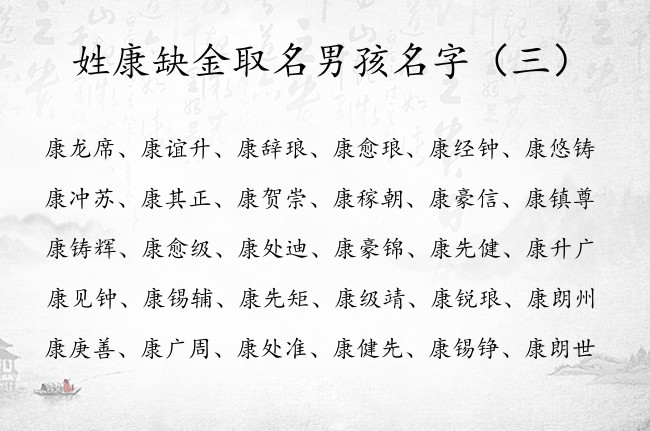 姓康缺金取名男孩名字（三）
康龙席、康谊升、康辞琅、康愈琅、康经钟、康悠铸
康冲苏、康其正、康贺崇、康稼朝、康豪信、康镇尊
康铸辉、康愈级、康处迪、康豪锦、康先健、康升广
康见钟、康锡辅、康先矩、康级靖、康锐琅、康朗州
康庚善、康广周、康处准、康健先、康锡铮、康朗世